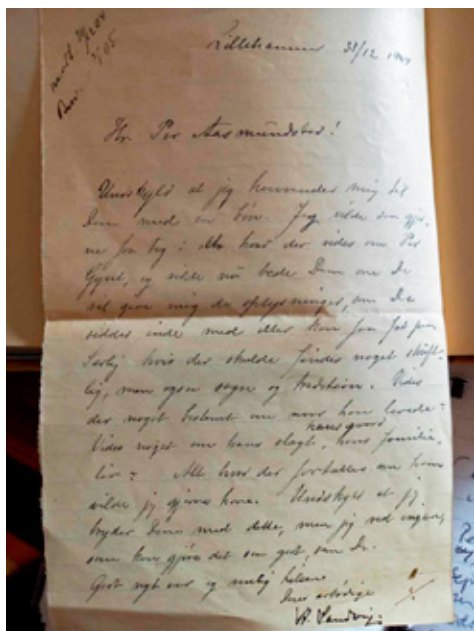 Lillehammer 28/12 1904
Hr. Per Aasmundstad!
Undskyld at jeg henvender mig til
Dem med en bøn. Jeg vilde saa gjer-
ne faa tag i alt hvad der vides om Per
Gynt, og vilde nu bede Dem om De
vil give mig de oplysninger, som De
sidder inde med eller kan faa fat paa
Særlig hvis der skulde findes noget skrift-
lig, men ogsaa sagn og tradition. Vides
der noget bestemt om naar han levede?
hans gaard
Vides noget om hans slægt, hans familie-
liv? Alt hvad der fortælles om ham
vilde jeg gjerne have. Undskyld at jeg
bryder Dem med dette, men jeg ved ingen,
som kan gjøre det saa godt, som De.
Godt nytaar og venlig hilsen
Deres ærbødige
A. Sandvig